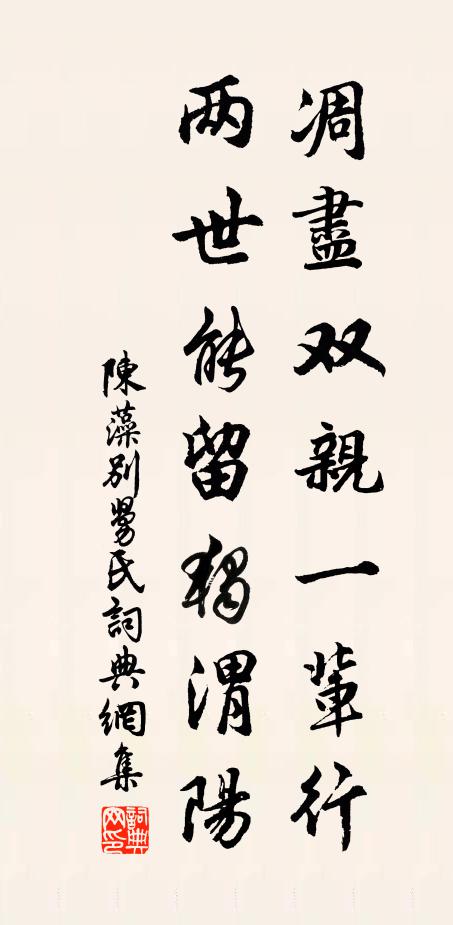 凋盡双親一輩行
两世能留獨渭陽
陳藻別舅氏詞典網集
詞典网印